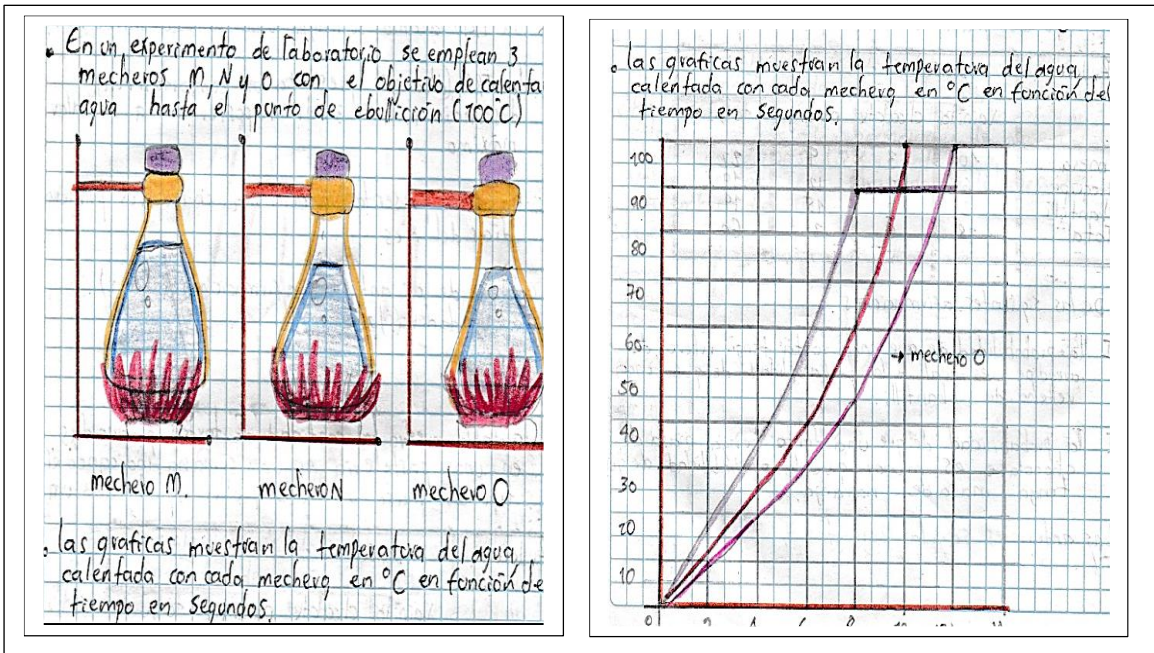 • En un experimento de laboratorio se emplean 3
mecheros M, N y O con el objetivo de calenta
agua hasta el punto de ebullición (100°C)
mechero M.
mechero N
mechero O
• las graficas muestran la temperatura del agua,
calentada con cada mechero en °C en función de
tiempo en segundos.
• las graficas muestran la temperatura del agua,
calentada con cada mechero en °C en función del
tiempo en segundos.
100
90
80
70
60
→ mechero O
50
40
30
20
10
0